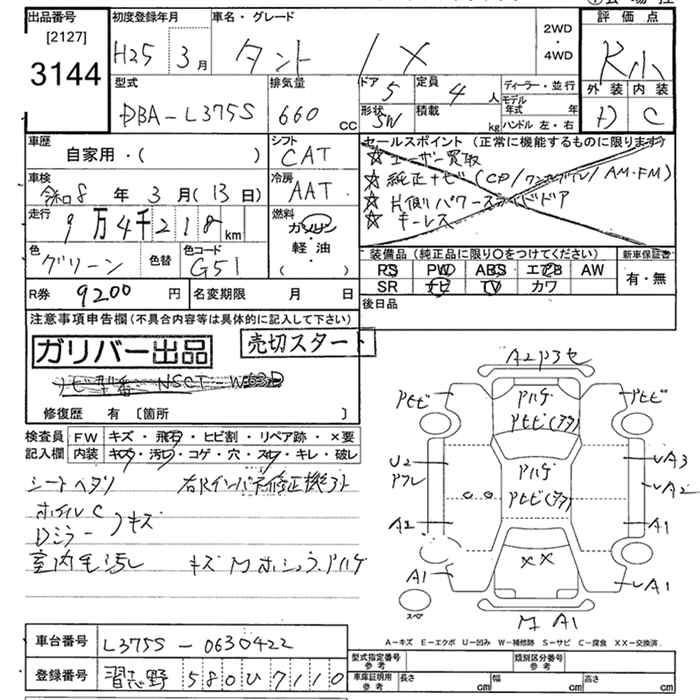 出品番号
[2127]
3144
初度登録年月
H25 3 月
車名・グレード
タント / X
2WD
・
4WD
評価点
R小
外装 内装
D C
型式
DBA-L375S
排気量
660 cc
ドア 5
定員 4 人
形状 5W
積載 kg
ディーラー・並行
モデル年式 年
ハンドル 左・右
車歴
自家用・( )
シフト
CAT
車検
令和8 年 3 月 (13 日)
冷房
AAT
走行
9 万 4 千 2 1 8 km
燃料
ガソリン
軽・油
( )
色
グリーン
色替
色コード
G51
R券 9200 円
名変期限 月 日
セールスポイント (正常に機能するものに限ります)
☆ ユーザー買取
☆ 純正ナビ (CD/ワンセグTV/AM・FM)
☆ 片側パワースライドドア
☆ キーレス
装備品 (純正品に限り〇をつけてください)
新車保証書
PS PW ABS エアB AW
SR ナビ TV カワ
有・無
後日品
注意事項申告欄 (不具合内容等は具体的に記入して下さい)
ガリバー出品
売切スタート
ナビ型番 NSCT-W63D
修復歴 有 〔箇所 〕
検査員 FW キズ・飛石・ヒビ割・リペア跡・×要
記入欄 内装 キズ・汚レ・コゲ・穴・スレ・キレ・破レ
シートヘタリ
右Rインパネ修正機外
ホイルC
Dミラー キズ
室内毛汚レ
キズ M ホシュウ、アハゲ
A2P3セ
Pヒビ
Pハゲ
Pヒビ(アタ)
Pヒビ
U2
Pフレ
A2
Pハゲ
Pヒビ(アタ)
UA3
UA2
A1
A1
××
UA1
スペア
M A1
A-キズ E-エクボ U-凹み W-補修跡 S-サビ C-腐食 XX-交換済
車台番号 L375S-0630422
登録番号 習志野 580 ひ 7110
型式指定番号 参考
類別区分番号 参考
車庫証明用 参考 長さ cm 幅 cm 高さ cm